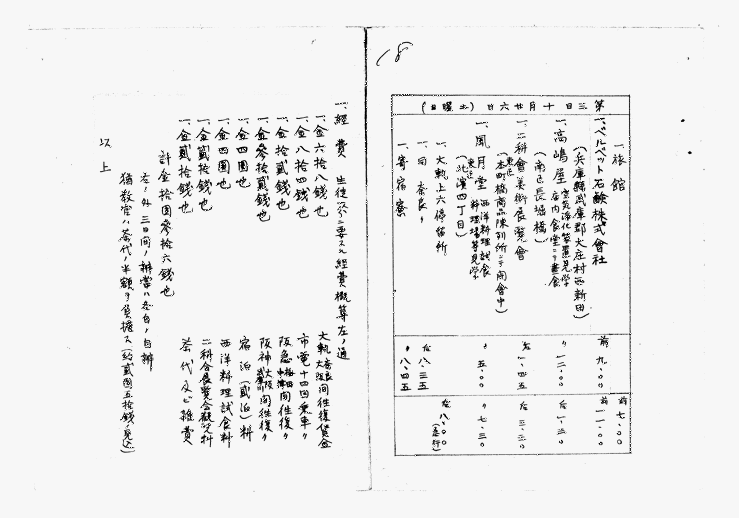 18
第三日 十月廿六日(土曜日)
一、旅館
前 七.〇〇
一、ベルベット石鹸株式會社
(兵庫縣武庫郡大庄村西新田)
前 九.〇〇
前 一一.〇〇
一、高嶋屋 空気浄化装置見学 店内食堂ニテ晝食
(南区長堀橋)
〃 一二.〇〇
后 一.三〇
一、二科會美術展覧會
(東区本町橋商品陳列所ニテ開會中)
后 一.四五
后 三.三〇
一、風月堂 西洋料理試食 料理場等見学
(東区北濱四丁目)
〃 五.〇〇
〃 七.三〇
一、大軌上六停留所
后 八.〇〇
(急行)
一、同 奈良〃
后 八.三五
一、寄宿寮
〃 八.四五
一、經費 生徒一人分ニ要スル經費概算左ノ通
一、金六拾八銭也 大軌奈良大阪間往復賃金
一、金八拾四銭也 市電十四回乗車〃
一、金拾貳銭也 阪急梅田中津間往復〃
一、金参拾貳銭也 阪神大阪 間往復〃
一、金四圓也 宿泊(貳泊)料
一、金四圓也 西洋料理試食料
一、金貳拾銭也 二科会展覧会観覧料
一、金貳拾銭也 茶代及ビ雑費
計金拾圓参拾六銭也
右ノ外三日間ノ辨當ハ各自ノ自辨
猶教官ハ茶代ノ半額ヲ負擔ス(約貳圓五拾銭ノ見込)
以上